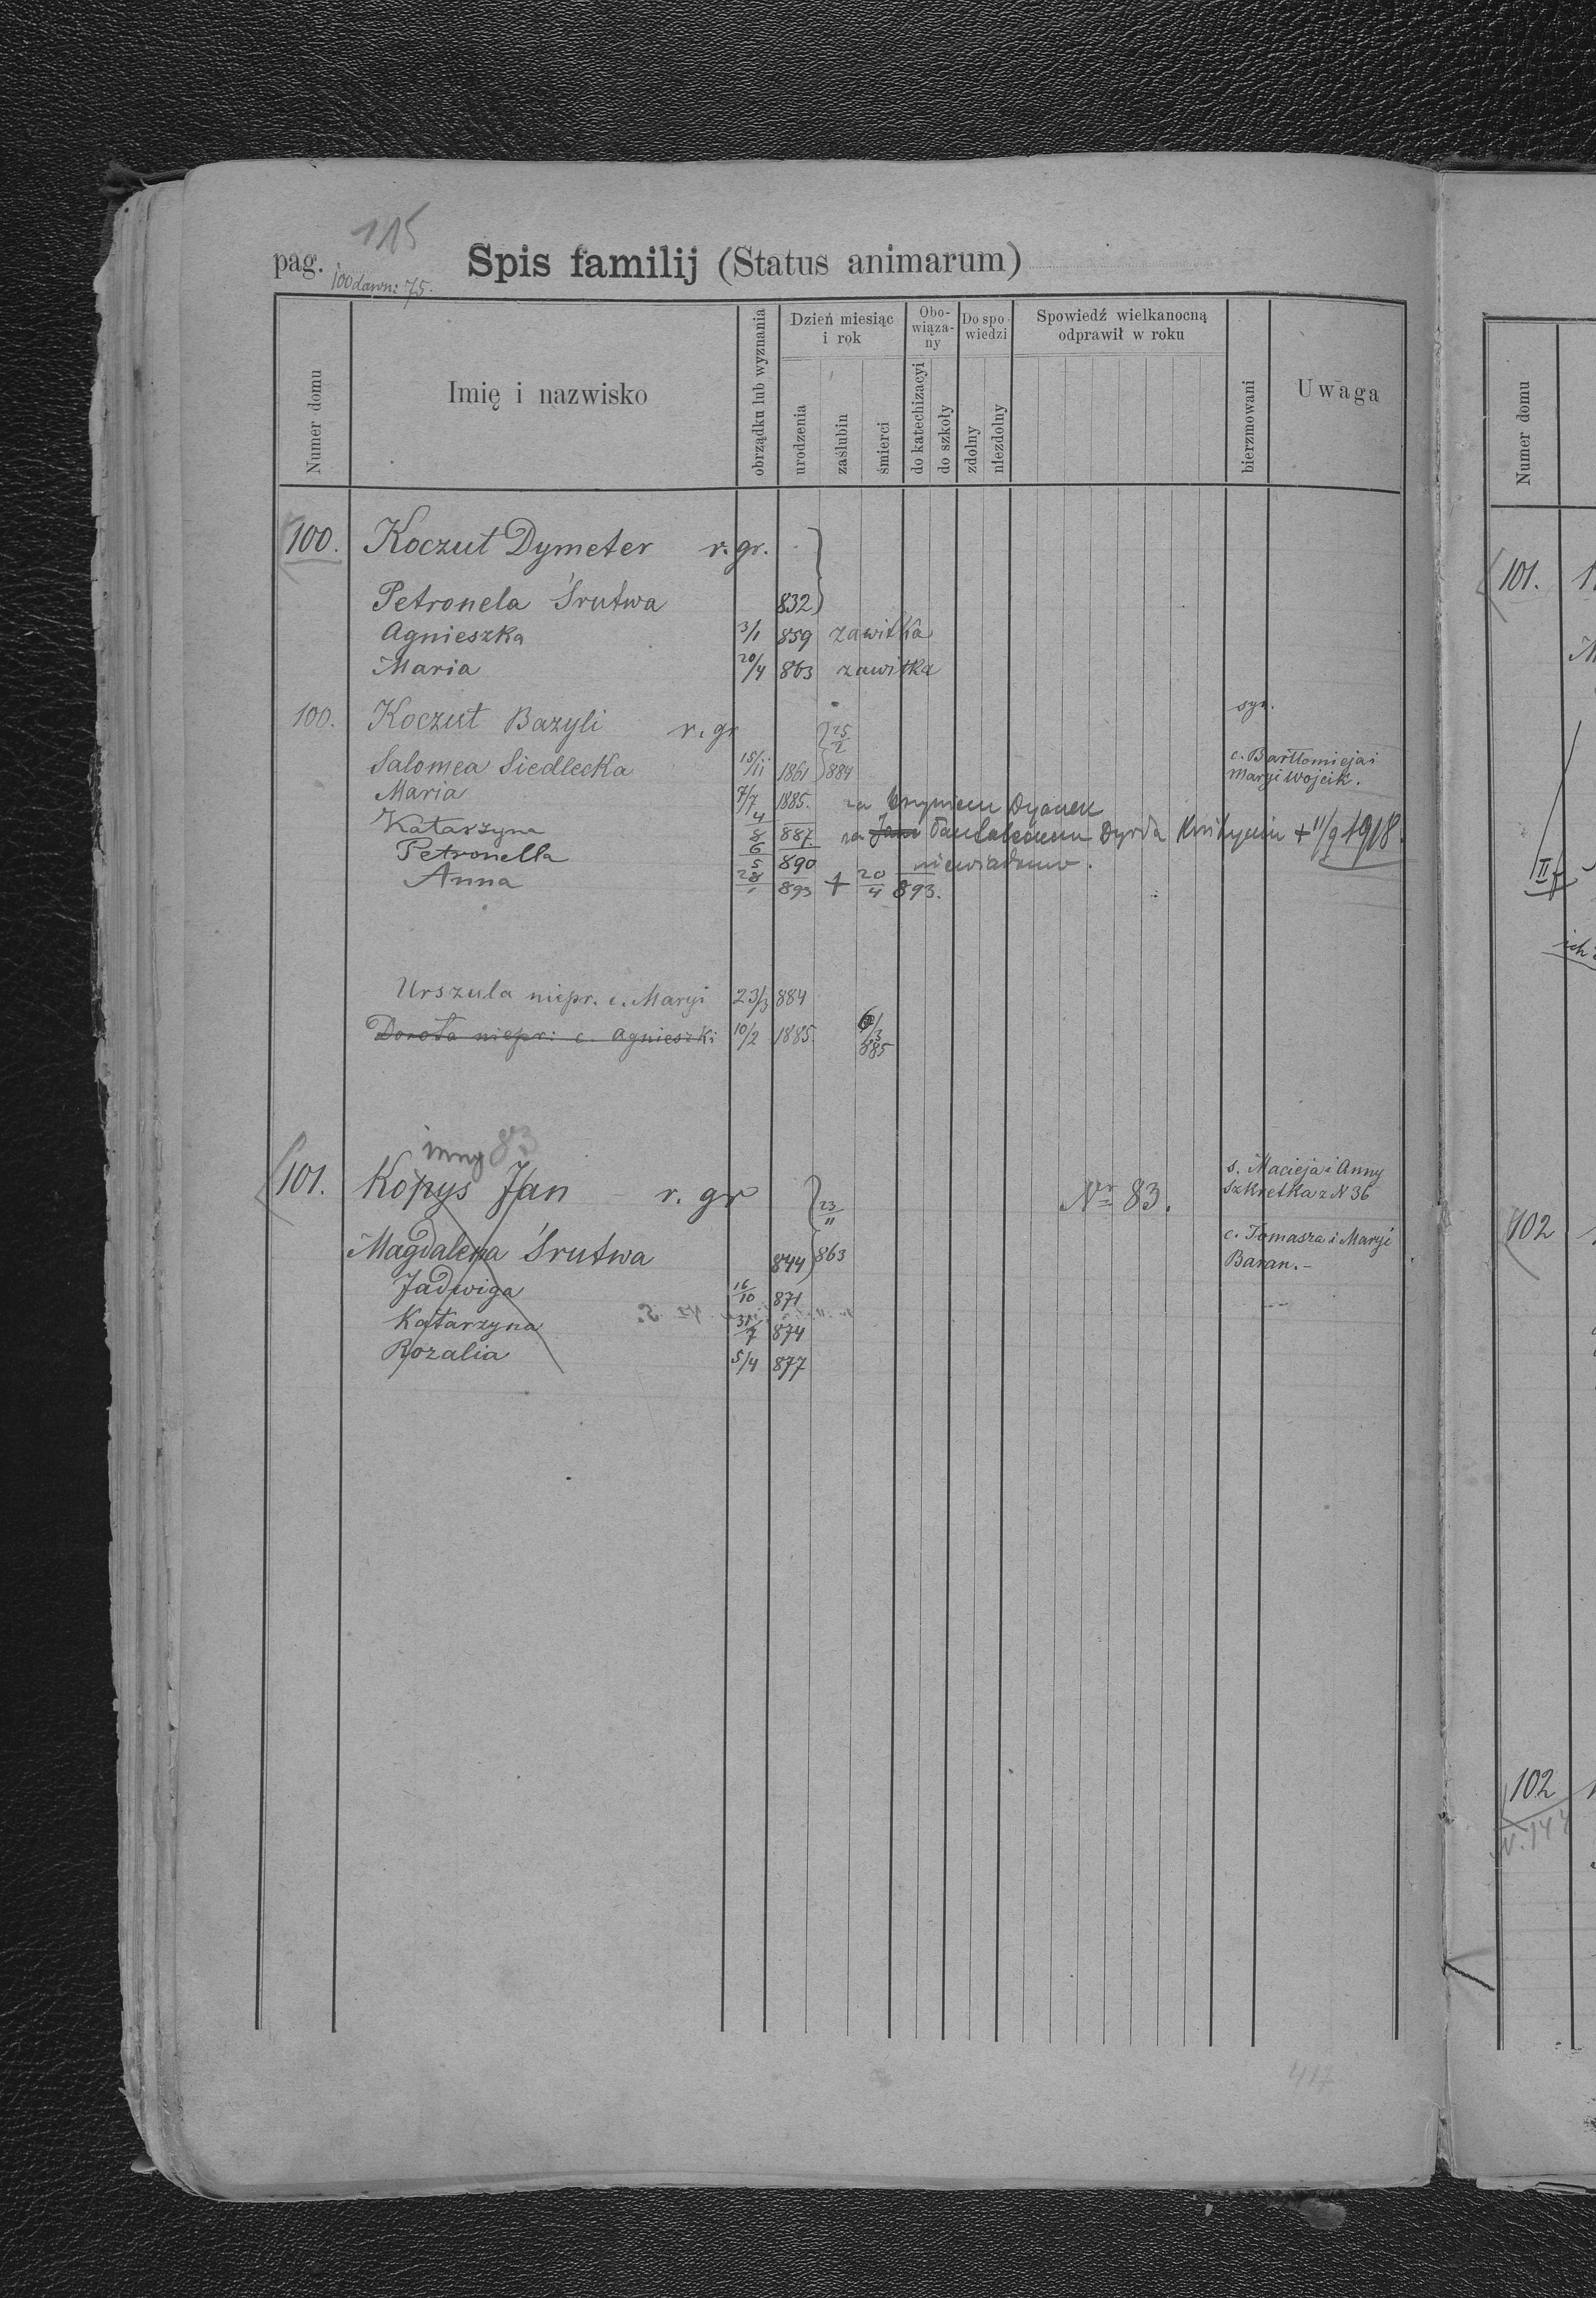 115
pag. 100 dawn: 75.
Spis familij (Status animarum)
Numer domu
Imię i nazwisko
obrządku lub wyznania
Dzień miesiąc i rok
urodzenia
zaślubin
śmierci
Obowiąza-ny
do katechizacyi
do szkoły
Do spowiedzi
zdolny
niezdolny
Spowiedź wielkanocną odprawił w roku
bierzmowani
Uwaga
100. Koczut Dymeter r. gr.
Petronela Śrutwa 832
Agnieszka 3/1 859 zawitka
Maria 20/4 863 zawitka
100. Koczut Bazyli r. gr 25/2 syn.
Salomea Siedlecka 15/11 1861 884 c. Bartłomieja i Maryi Wojcik.
Maria 7/7 1885. za
Katarzyna 4/8 887. za Jana Dyrda + 11/9 1918.
Petronella 6/5 890 niewiadomo.
Anna 28/1 893 + 20/4 893.
Urszula niepr. c. Maryi 23/3 884
Dorota niepr: c. Agnieszki 10/2 1885. /3 885
inny 83
101. Kopys Jan r. gr 23/11 Nr 83. s. Macieja i Anny Szkretka z N 36
Magdalena Śrutwa 844 863 c. Tomasza i Maryi Baran.-
Jadwiga 16/10 871
Katarzyna 31/7 874
Rozalia 5/4 877
417
Numer domu
101.
II
102
102
N. 144